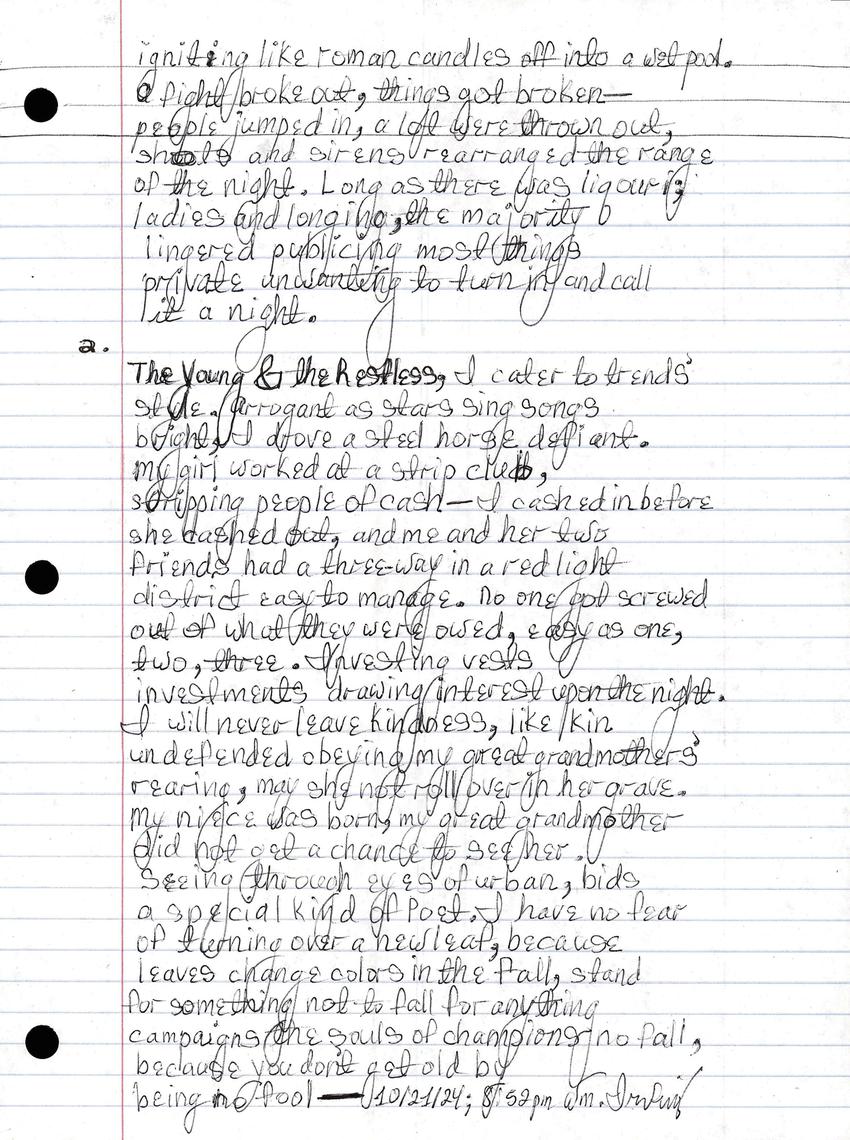 igniting like roman candles off into a wet pool.
a fight broke out, things got broken—
people jumped in, a lot were thrown out,
shots and sirens rearranged the range
of the night. Long as there was liqour,
ladies and longing, the majority
lingered publicing most things
private unwanting to turn in and call
it a night.
2.
The Young & the Restless, I cater to trends'
style. Arrogant as stars sing songs
bright, I drove a steel horse defiant.
my girl worked at a strip club,
stripping people of cash— I cashed in before
she cashed out, and me and her two
friends had a three-way in a red light
district easy to manage. No one got screwed
out of what they were owed, easy as one,
two, three. Investing vests
investments drawing interest upon the night.
I will never leave kindness, like kin
undefended obeying my great grandmothers'
rearing, may she not roll over in her grave.
my niece was born, my great grandmother
did not get a chance to see her.
Seeing through eyes of urban, bids
a special kind of Poet. I have no fear
of turning over a new leaf, because
leaves change colors in the Fall, stand
for something not to fall for anything
campaigns the souls of champions no fall,
because you don't get old by
being no fool — 10/21/24; 8:52pm Wm.